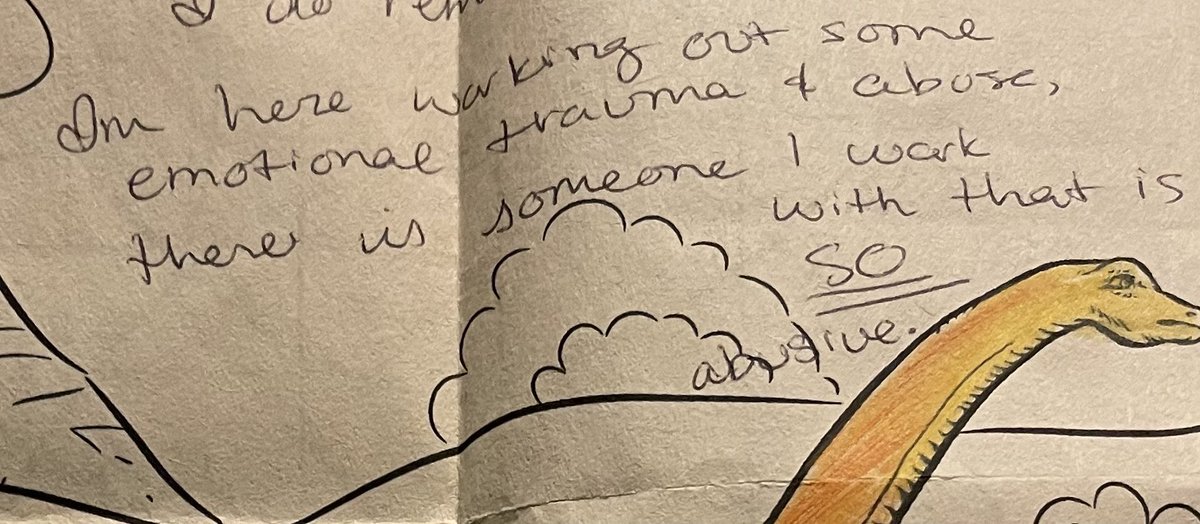 I do rem
Im here working out some
emotional trauma & abuse,
there is someone I work
with that is
SO
abusive.